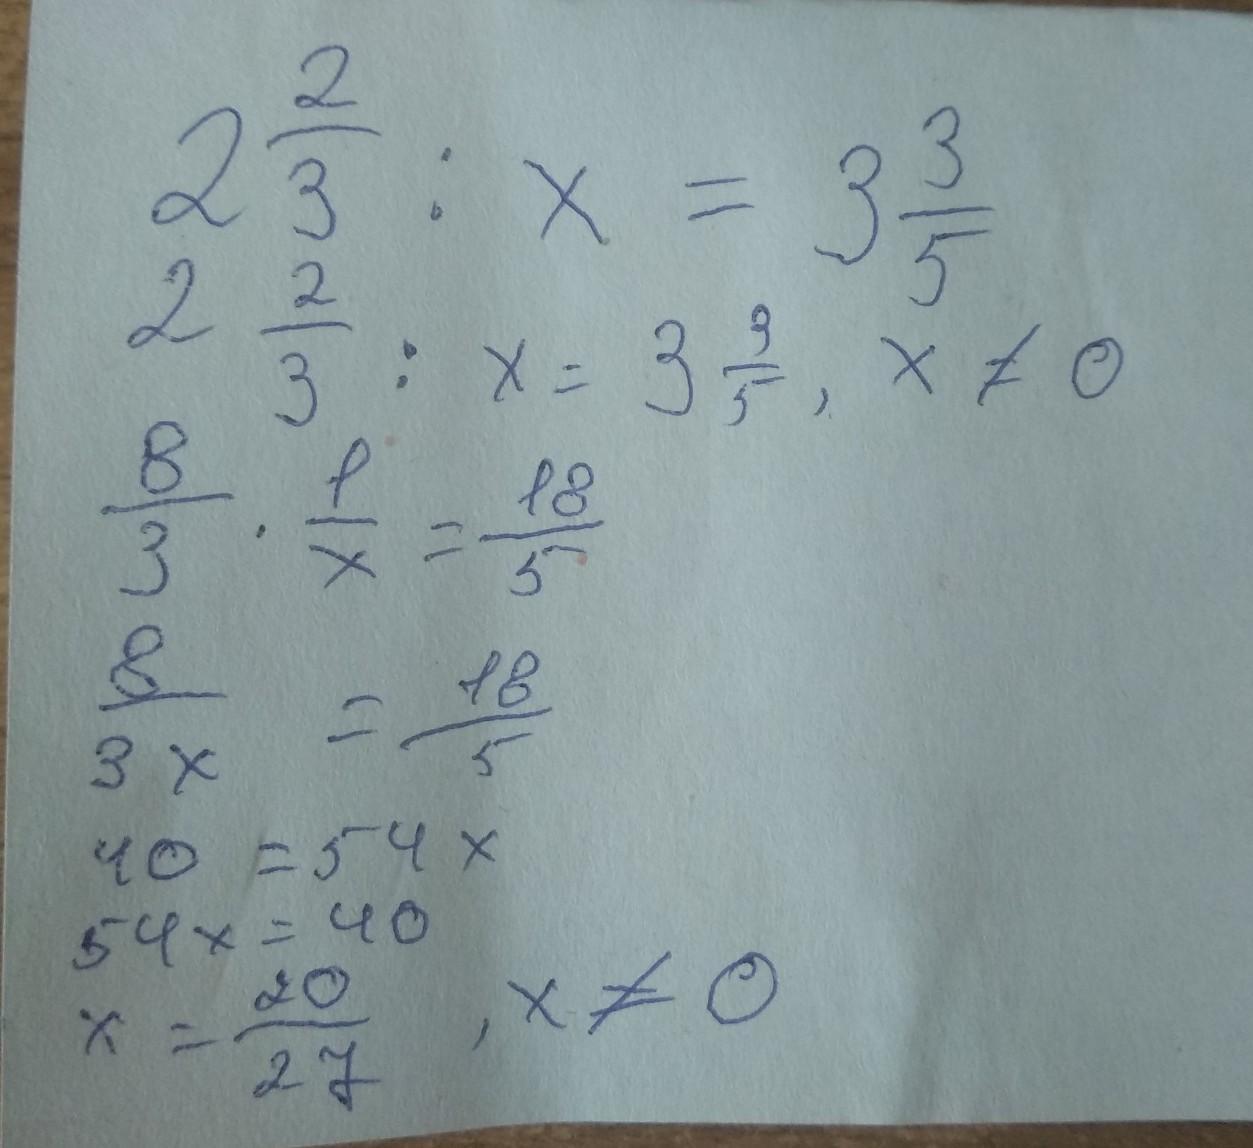 2 2/3 : x = 3 3/5
2 2/3 : x = 3 3/5, x ≠ 0
8/3 · 1/x = 18/5
8/3x = 18/5
40 = 54x
54x = 40
x = 20/27, x ≠ 0